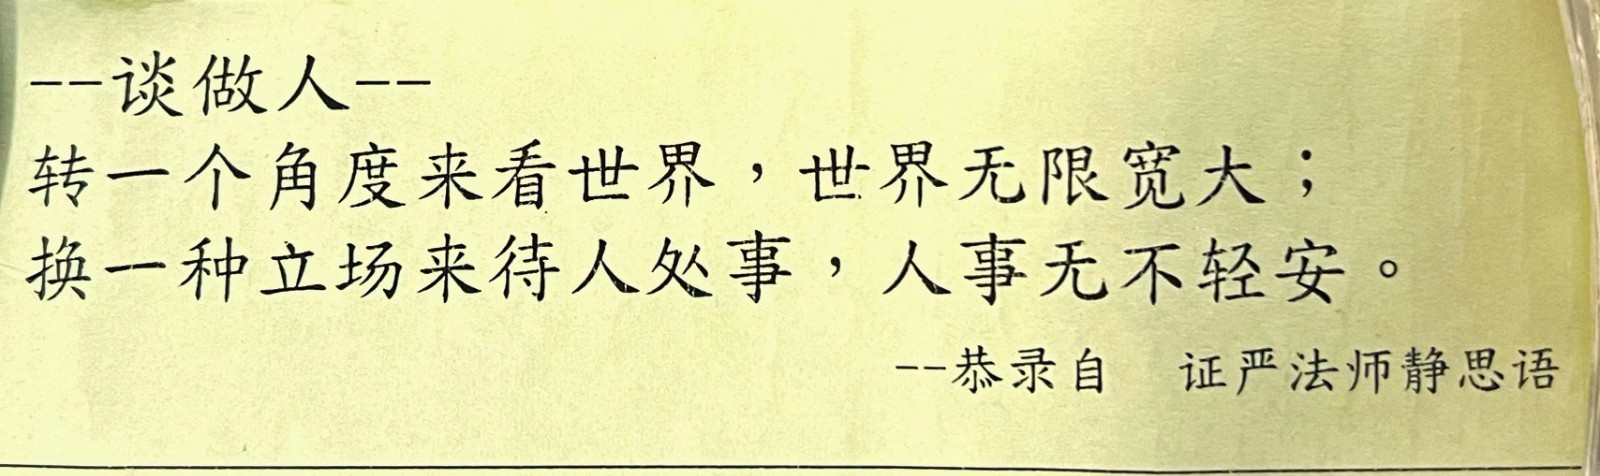 --谈做人--
转一个角度来看世界，世界无限宽大；
换一种立场来待人处事，人事无不轻安。
--恭录自　证严法师静思语